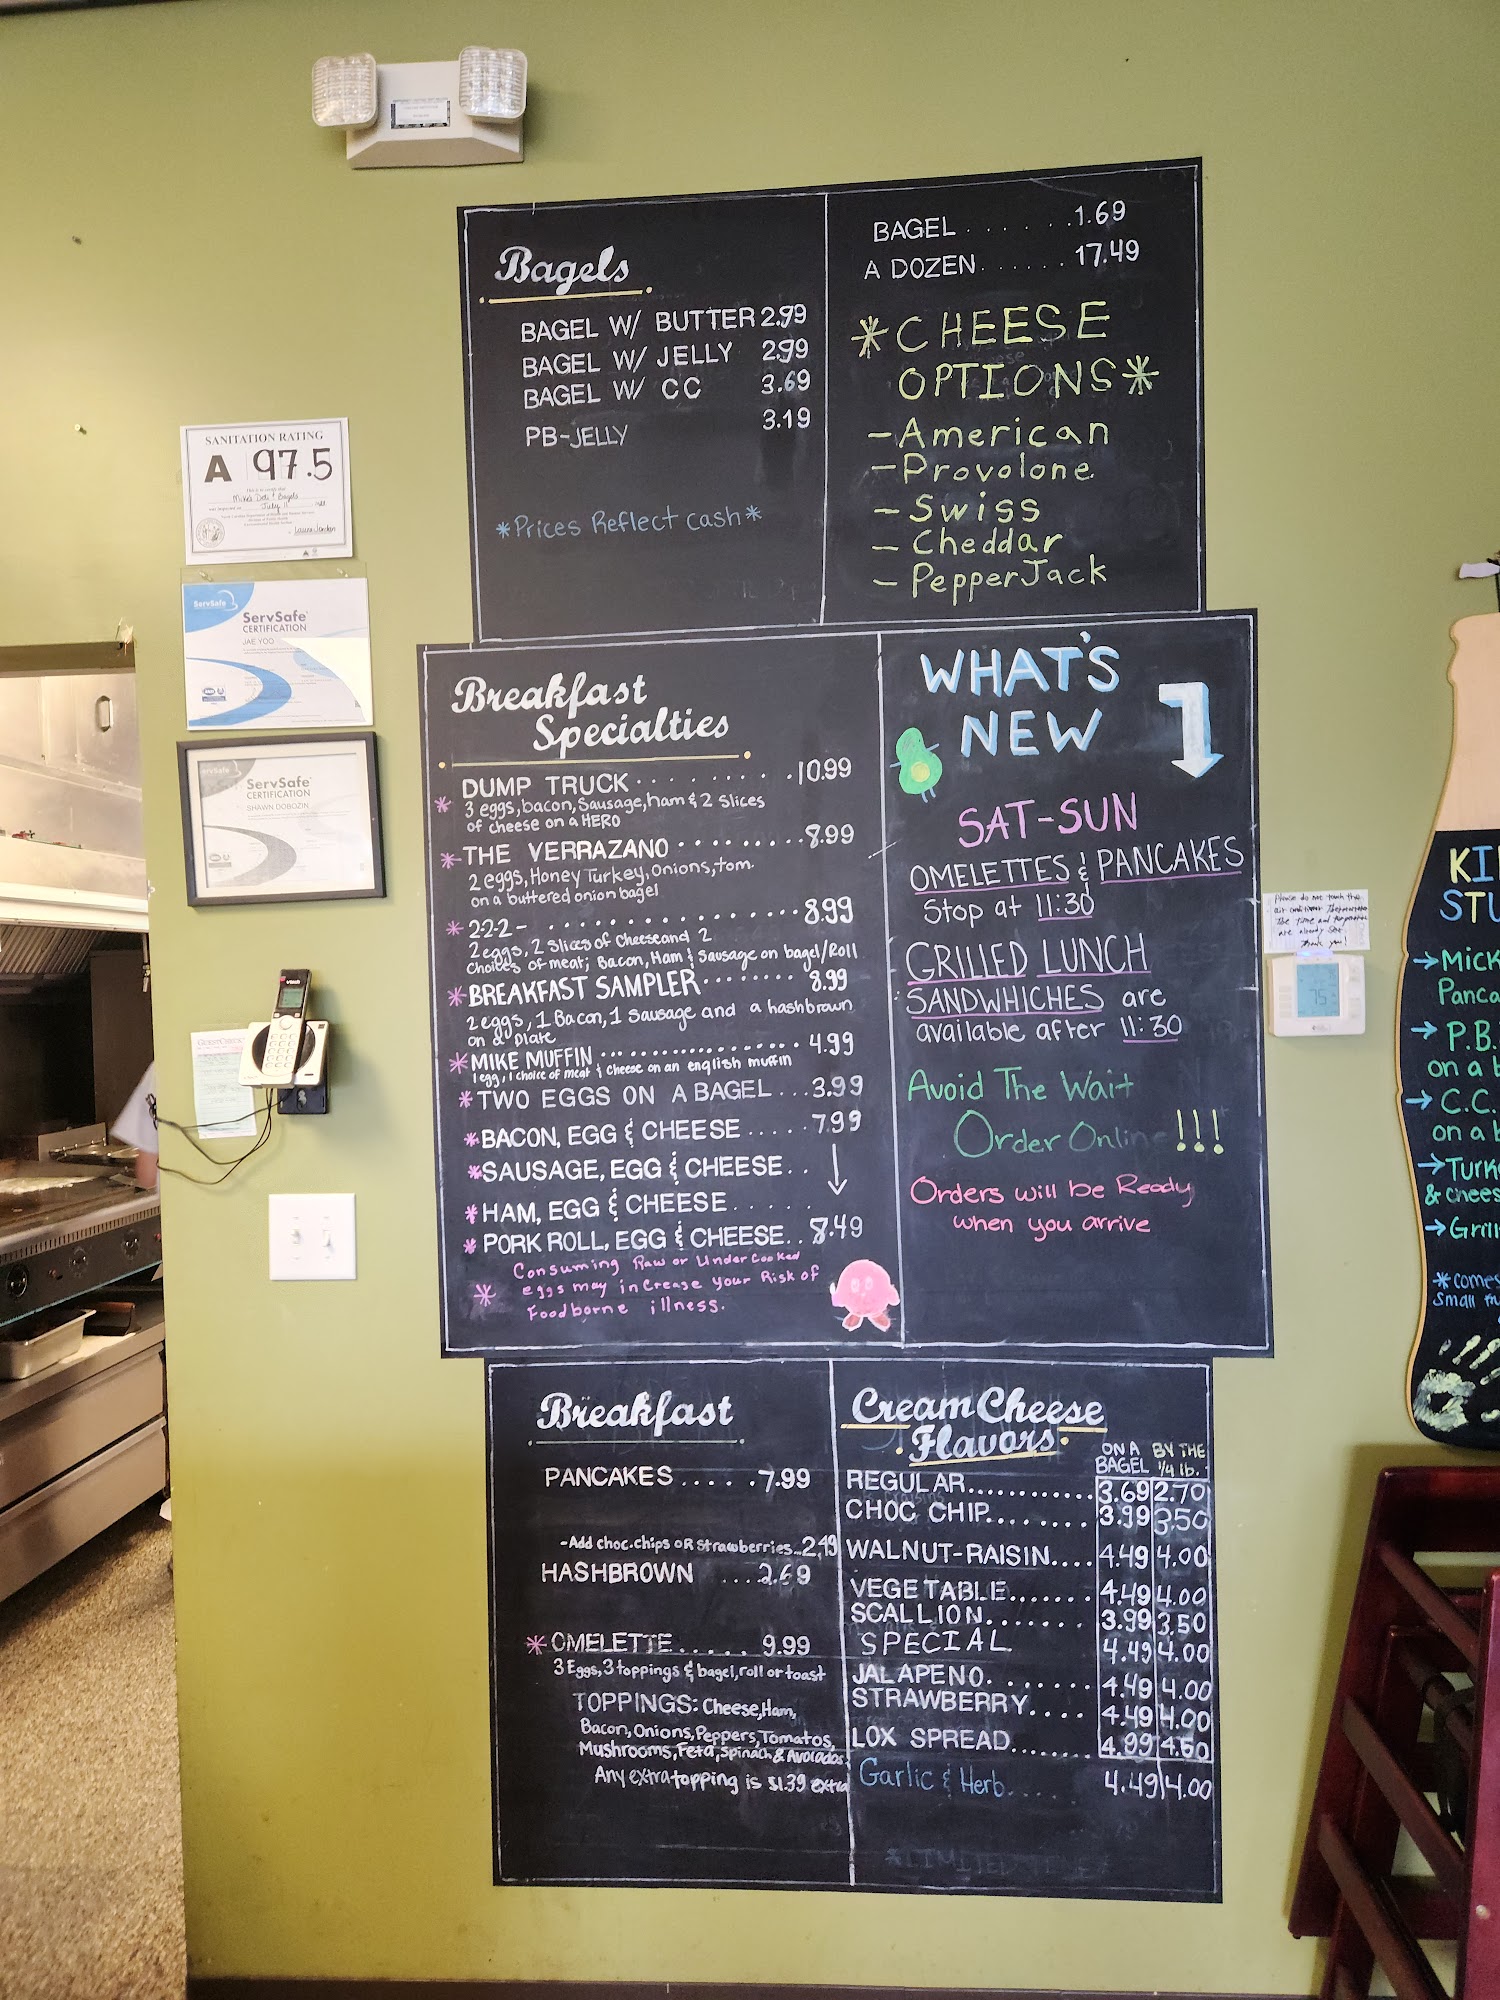 SANITATION RATING
A 97.5
Mike's Deli & Bagels
July 11
ServSafe
ServSafe
CERTIFICATION
JAE YOO
ServSafe
CERTIFICATION
SHAWN DOBOZIN
vtech
Bagels
BAGEL W/ BUTTER 2.99
BAGEL W/ JELLY 2.99
BAGEL W/ CC 3.69
PB-JELLY 3.19
*Prices Reflect cash*
BAGEL . . . . . . .1.69
A DOZEN . . . . . . 17.49
*CHEESE
OPTIONS*
- American
- Provolone
- Swiss
- Cheddar
- PepperJack
Breakfast
Specialties
DUMP TRUCK . . . . . . . . .10.99
* 3 eggs, bacon, Sausage, ham & 2 Slices
of cheese on a HERO
*THE VERRAZANO . . . . . . . .8.99
2 eggs, Honey Turkey, Onions, tom.
on a buttered onion bagel
* 2-2-2- . . . . . . . . . . . . . . . 8.99
2 eggs, 2 Slices of Cheese and 2
Choices of meat; Bacon, Ham & Sausage on bagel/Roll
*BREAKFAST SAMPLER . . . . . . 8.99
2 eggs, 1 Bacon, 1 Sausage and a hashbrown
on a plate
*MIKE MUFFIN . . . . . . . . . . . . . . . . 4.99
1 egg, 1 choice of meat & cheese on an english muffin
*TWO EGGS ON A BAGEL . . . 3.99
*BACON, EGG & CHEESE . . . . . 7.99
*SAUSAGE, EGG & CHEESE . .
*HAM, EGG & CHEESE . . . . . .
*PORK ROLL, EGG & CHEESE . . 8.49
* Consuming Raw or Undercooked
eggs may increase your Risk of
Foodborne illness.
WHAT'S
NEW
SAT-SUN
OMELETTES & PANCAKES
Stop at 11:30
GRILLED LUNCH
SANDWHICHES are
available after 11:30
Avoid The Wait
Order Online !!!
Orders will be Ready
when you arrive
Breakfast
PANCAKES . . . . . 7.99
-Add choc.chips OR Strawberries . . 2.49
HASHBROWN . . . . 2.69
* OMELETTE . . . . . 9.99
3 Eggs, 3 toppings & bagel, roll or toast
TOPPINGS: Cheese, Ham,
Bacon, Onions, Peppers, Tomatos,
Mushrooms, Feta, Spinach & Avocados
Any extra topping is $1.39 extra
Cream Cheese
Flavors
ON A BAGEL BY THE 1/4 lb.
REGULAR............ 3.69 2.70
CHOC CHIP........ 3.99 3.50
WALNUT-RAISIN.... 4.49 4.00
VEGETABLE....... 4.49 4.00
SCALLION........ 3.99 3.50
SPECIAL 4.49 4.00
JALAPENO........ 4.49 4.00
STRAWBERRY.... 4.49 4.00
LOX SPREAD....... 4.99 4.60
Garlic & Herb...... 4.49 4.00
Please do not touch the
75
KI
STU
→ Mick
Panca
→ P.B.
on a b
→ C.C.
on a b
→ Turk
& chees
→ Gril
*comes
Small fr